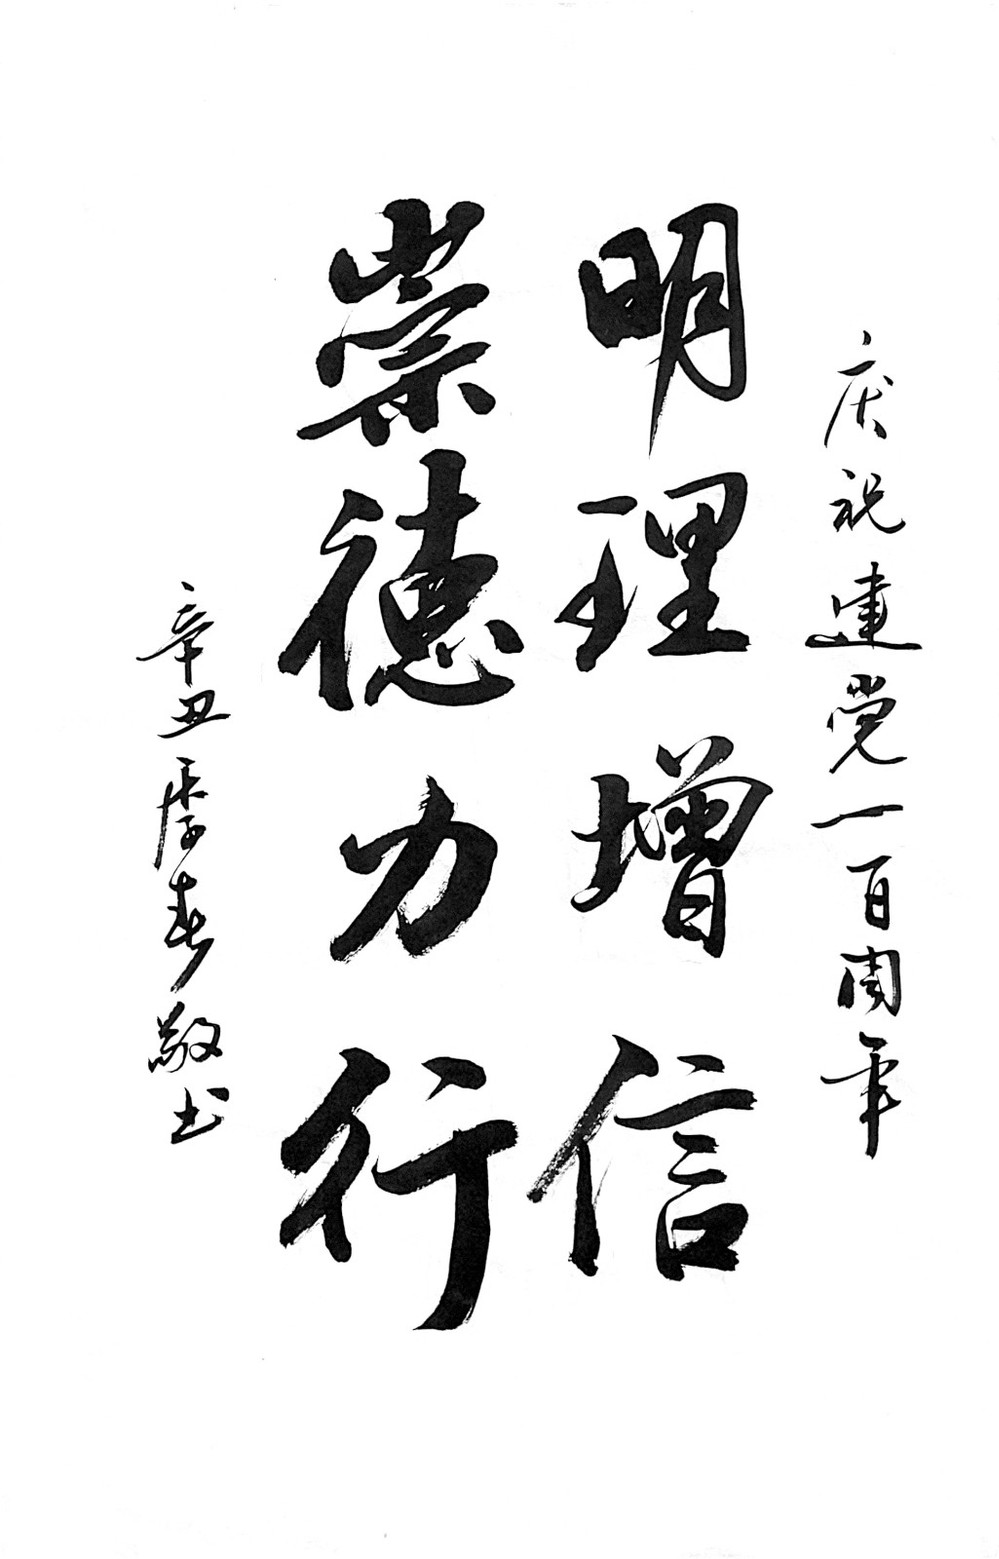 庆祝建党一百周年
明理增信
崇德力行
辛丑季春敬书